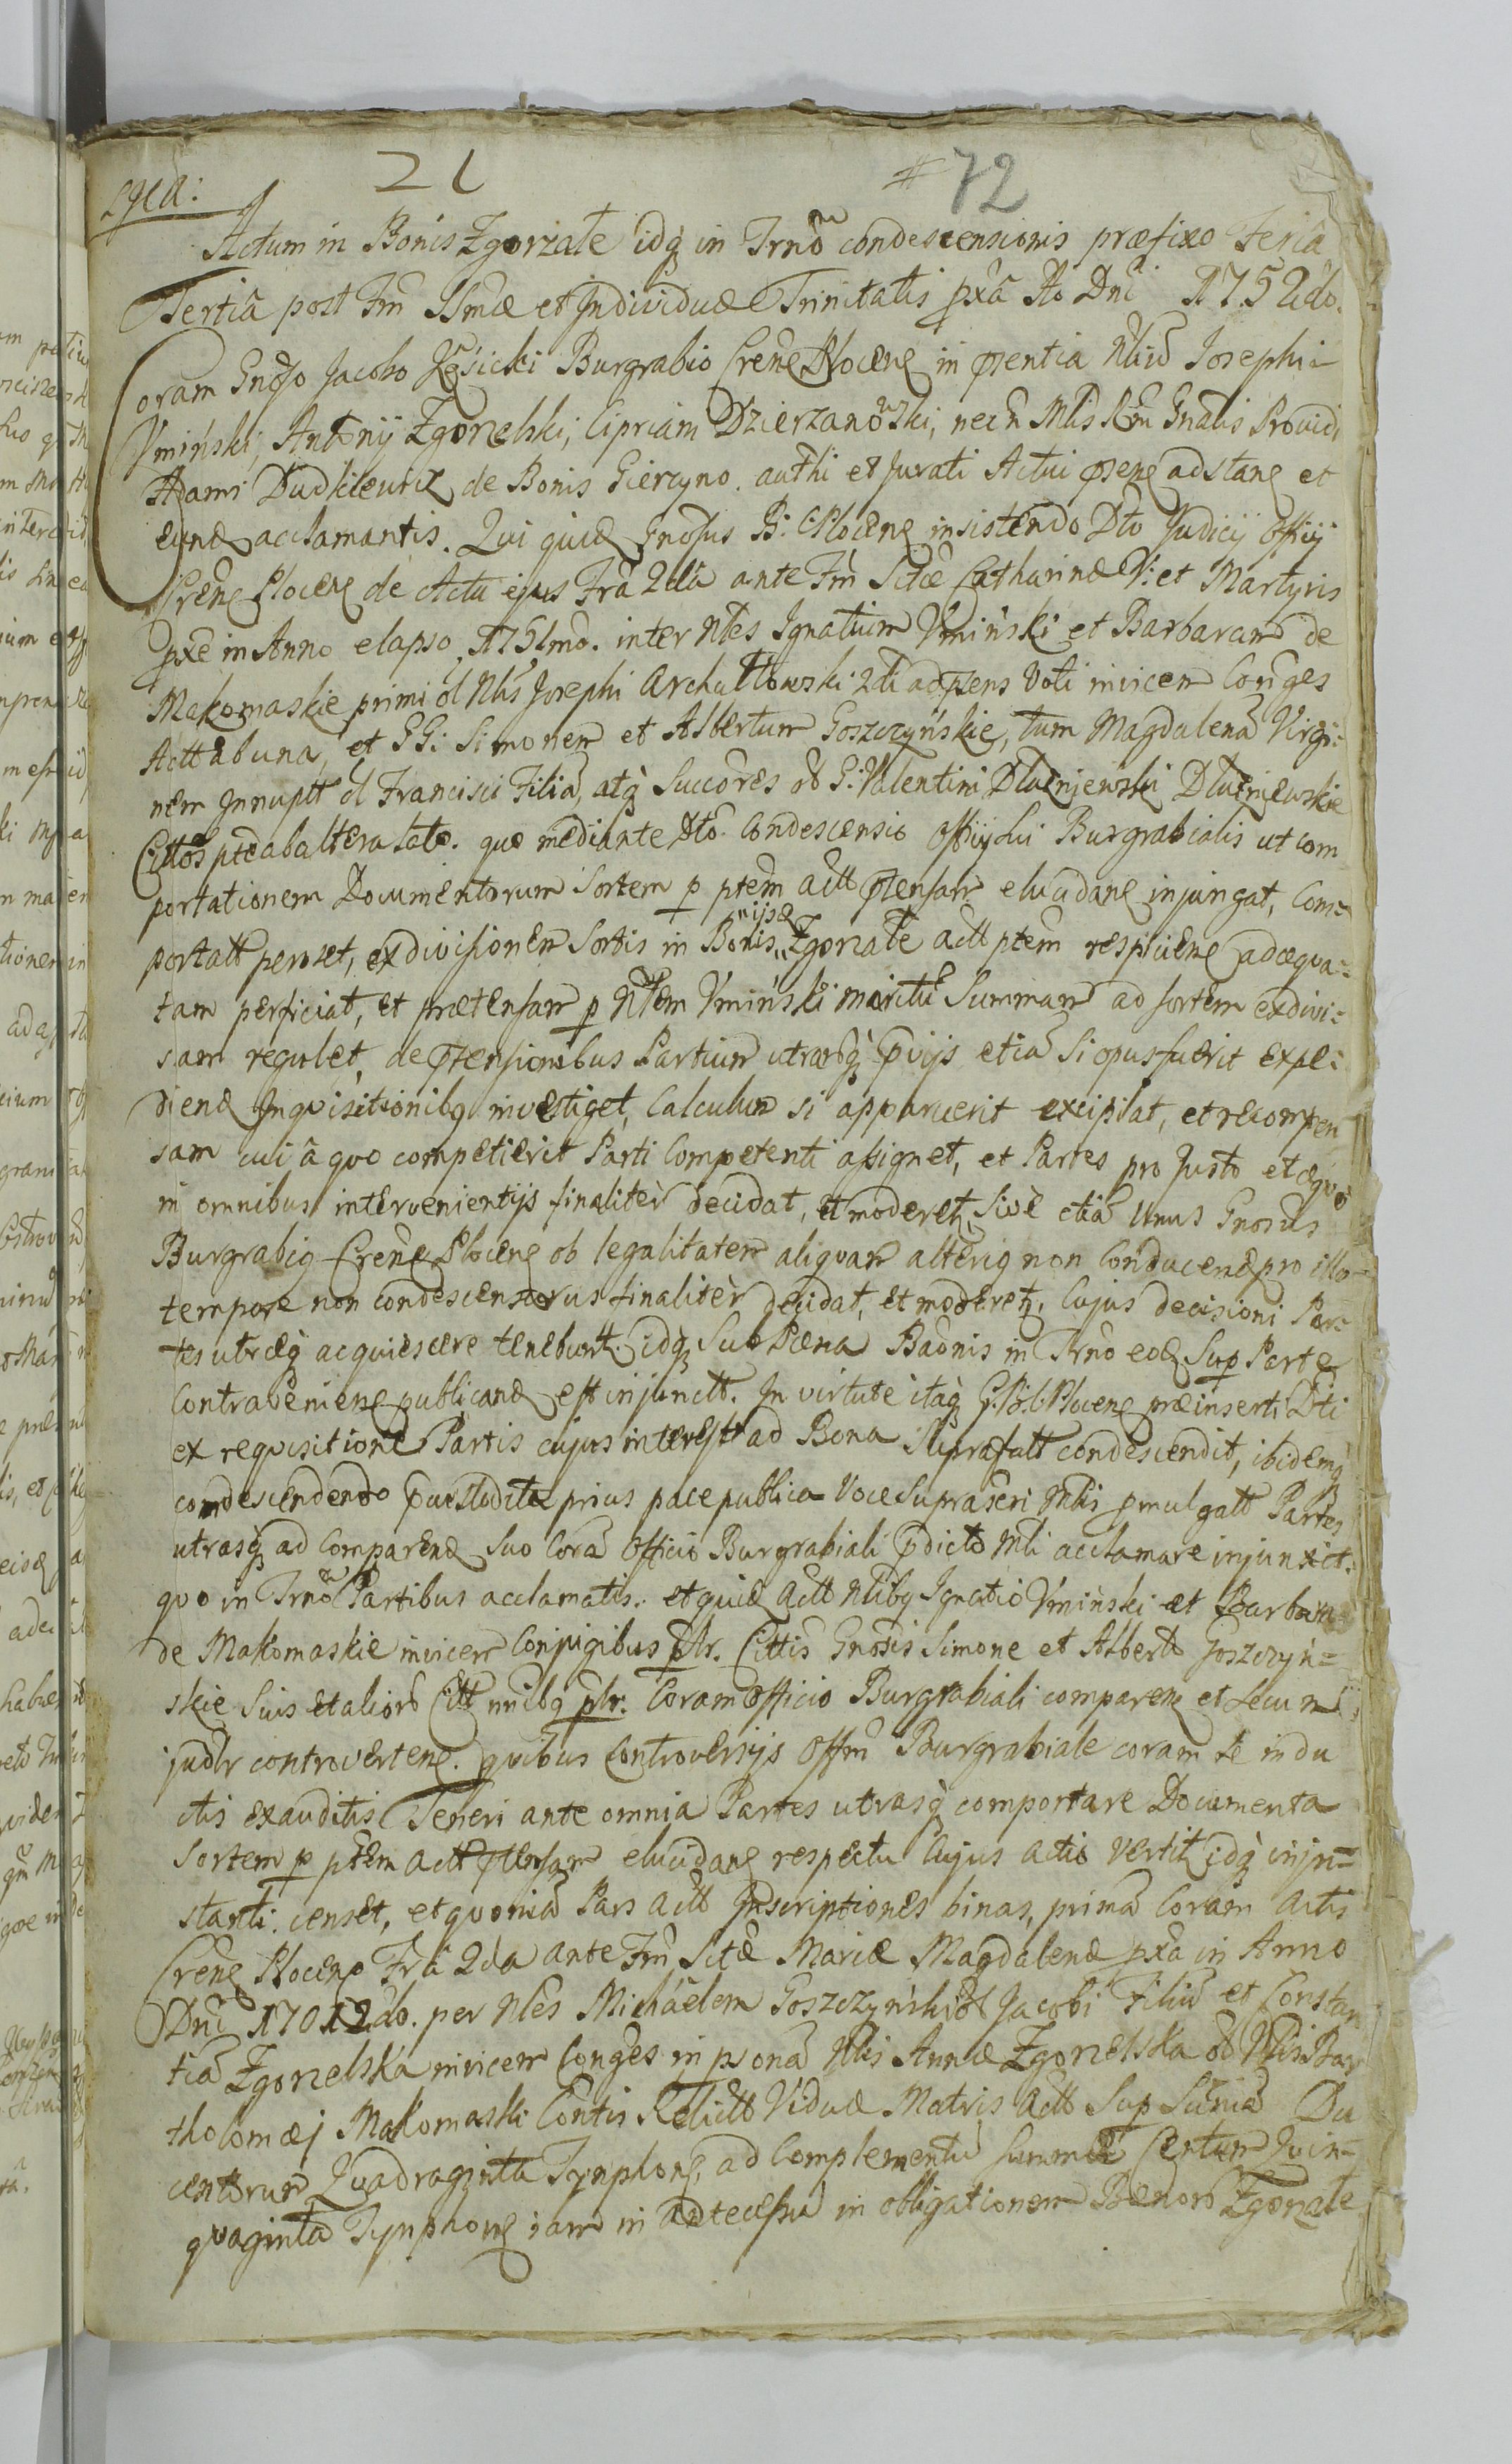 21 # 72
Actum in Bonis Zgorzałe idq; in Trno condescensionis præfixo Feria
Tertiâ post Fm SSmæ et Individuæ Trinitatis pxâ Ao Dni 1752do.
Coram Gnoso Jacobo Burgrabio Crene Plocen in pñtia Nbiu Josephi
Vmiński, Antonij Zgorzelski, Cipriani Dzierzanowski, necn Mlis Rni Gnalis Providi
Adami Dudkiewicz de Bonis Gierzyno. authi et Jurati Actui pñen adstan et
eund acclamantis. Qui quid Gnosus B: C: Plocen insistendo Dto Judicij Officij
Crene Plocen de Actu ejus Fra 2da ante Fm Sctæ Catharinæ V: et Martyris
pxe in Anno elapso 1751mo. inter Nbles Ignatium Vmiński et Barbaram de
Makomaskie primi ol Nblis Josephi Archutowski 2di ad pñens Voti invicem Conges
Actt ab una, et GG: Simonem et Albertum Goszczyńskie, tum Magdalena Virgi:
nem Innupt ol Francisci Filia, atq; Succores ol G: Valentini Dłużniewski Dłużniewskie
Cittos pte ab altera late. quo mediante Dto. Condescensio Officij sui Burgrabialis ut com
portationem Documentorum Sortem p ptem actt ptensam elucidan injungat, Com=
portatt perviset, exdivisionem Sortis in Bonis ijsd Zgorzałe actt ptem respicien adæqva:
tam perficiat, et prætensam p Nblem Vmiński mariti Summam ad sortem exdivi:
sam regulet, de ptensionibus Partium utrarq; pvijs etiâ si opus fuerit expe:
diend Inqvisitionibq investiget, Calculum si apparuerit excipiat, et recompen
sam cui â quo competierit Parti Competenti assignet, et Partes pro Justo et æquo
in omnibus intervenientijs finaliter decidat, et moderet, Sive etiâ Unus Gnosus
Burgrabiq Crene Plocen ob legalitatem aliqvam alteriq non Conducend pro illo
tempore non condescensurus finaliter decidat, et moderet. Cujus decisioni Par=
tes utræq; acquiescere tenebunt. idq; Sub Pæna Baonis in Trno eod Sup Parte
Contravenien publicand est injunctt. In virtute itaq; G: B: C: Plocen præinserti Dti
ex requisitione Partis cujus interest ad Bona Suprafatt condescendit, ibidemq;
condescendendo Custodita prius pace publica Voce Suprascri Mlis pmulgatt Partes
utrasq; ad Comparend Suo Corâ Officio Burgrabiali pdicto Mli acclamare injunxit.
quo in Trno Partibus acclamatis. et quid actt Nblibq Ignatio Vmiński et Barbara
de Makomaskie invicem Conjugibus plr. Cittis Gnosis Simone et Alberto Goszczyń=
skie Suis et alioru Citt nnibq plr. Coram Officio Burgrabiali comparen et secum
judlr controverten. quibus Controversijs Offm Burgrabiale coram se indu
ctis exauditis Teneri ante omnia Partes utrasq; comportare Documenta
Sortem p ptem actt ptensam elucidan respectu Cujus actio vertit idq; in in=
stanti. censet, et quoniâ Pars actt Inscriptiones binas, primâ Coram actis
Crene Plocen Fra 2da ante Fm Sctæ Mariæ Magdalenæ pxa in Anno
Dni 17012do. per Nbles Michâelem Goszczyński ol Jacobi Filiu et Constan
tiâ Zgorzelska invicem Conges in psona Nblis Annæ Zgorzelska ol Nblis Bar
tholomæj Makomaski Contis Relictt Viduæ Matris actt Sup Suma Du
centorum Qvadraginta Tynphon, ad Complementu Summæ Centum Qvin=
qvaginta Tynphon iam in antecessu in obligationem Bonoru Zgorzałe